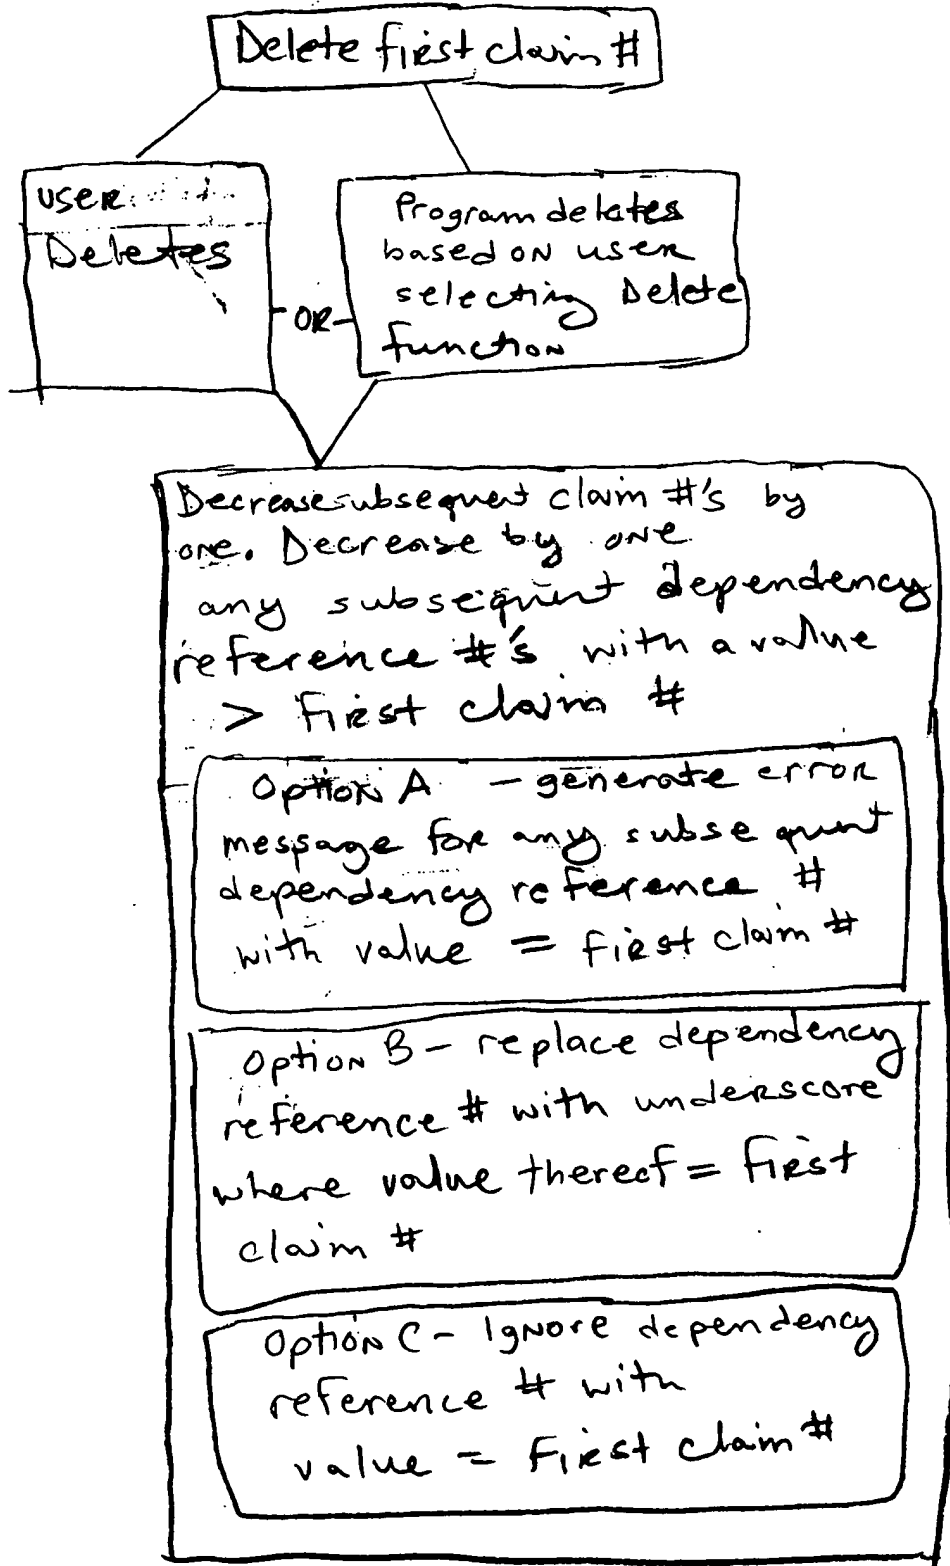 Delete first claim #
user
Deletes
OR
Program deletes
based on user
selecting Delete
function
Decrease subsequent claim #'s by
one. Decrease by one
any subsequent dependency
reference #'s with a value
> first claim #
Option A - generate error
message for any subsequent
dependency reference #
with value = first claim #
Option B - replace dependency
reference # with underscore
where value thereof = first
claim #
Option C - Ignore dependency
reference # with
value = First claim #